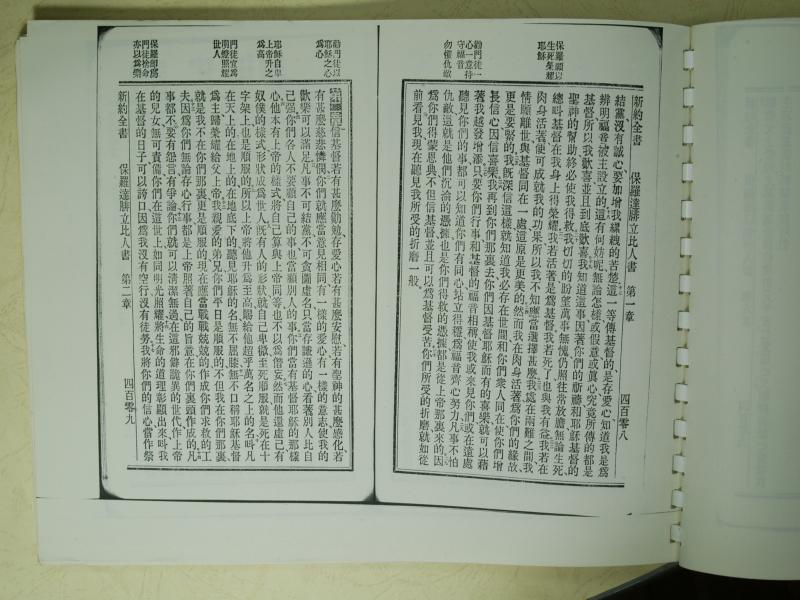 保羅願以
生死榮耀
耶穌
勸門徒一
心一意持
守福音
勿懼仇敵
新約全書 保羅達腓立比人書 第一章 四百零八
結黨沒有誠心要加增我縲絏的苦楚這一等傳基督的是存愛心知道我是爲
辨明福音被主設立的這有何妨呢無論怎樣或假意或眞心究竟所傳的都是
基督所以我歡喜並且到底歡喜我知道這事因著你們的祈禱和耶穌基督的
聖神的幫助終必使我得救我切切的盼望萬事無愧仍照往常放膽無論生死
總呌基督在我身上得榮耀我若活著是爲基督我若死了也與我有益我若在
肉身活著便可成就我的功果所以我不知應當選擇甚麼我處在兩難之間我
情願離世與基督同在一處這原是更美的然而我在肉身活著爲你們的緣故
更是要緊的我旣深信這樣就知道我必存在世間和你們衆人同在使你們增
長信心因信喜樂我再到你們那裏去你們因基督耶穌而有的喜樂就可以藉
著我越發增添只要你們行事和基督的福音相稱使我或來見你們或在遠處
聽見你們的事都可以知道你們有同心站立得穩爲福音齊心努力凡事不怕
仇敵這就是他們沉淪的憑據也是你們得救的憑據都是從上帝那裏來的因
爲你們得蒙恩典不但信基督並且可以爲基督受苦你們所受的折磨就如從
前看見我現在聽見我所受的折磨一般
勸門徒以
耶穌之心
爲心
耶穌自卑
上帝升之
爲高
門徒宜爲
明燈照耀
世人
保羅卽爲
門徒捨命
亦以爲樂
第二章信基督若有甚麼勸勉存愛心若有甚麼安慰若有聖神的甚麼感化若
有甚麼慈悲憐憫你們就應當意見相同有一樣的愛心有一樣的意志使我的
歡樂可以滿足凡事不可結黨不可貪圖虛名只當存謙遜的心看著別人比自
己强你們各人不要顧自己的事也當顧別人的事你們當有基督耶穌的那樣
心他本有上帝的樣式將自己算與上帝同等也不以爲僭妄然而他還虛己有
奴僕的樣式形狀成爲世人旣有人的形狀就自己卑微至死順服就是死在十
字架上也是順服的所以上帝將他升爲至高賜給他超乎萬名之上的名呌凡
在天上的在地上的在地底下的聽見耶穌的名無不屈膝無不口稱耶穌基督
爲主歸榮耀給父上帝我親愛的弟兄你們平日是順服的不但我在你們那裏
就是我不在你們那裏更是順服的現在應當戰戰兢兢的作成你們求救的工
夫因爲你們無論存心行事都是上帝照著自己的旨意在你們裏頭作成的凡
事都不要有怨言有爭論你們就可以清潔無過在這邪僻詭異的世代作上帝
的兒女無可責備你們在這世上如同明光照耀將生命的道理彰顯出來呌我
在基督的日子可以誇口因爲我沒有空行沒有徒勞我將你們的信心當作祭
新約全書 保羅達腓立比人書 第二章 四百零九